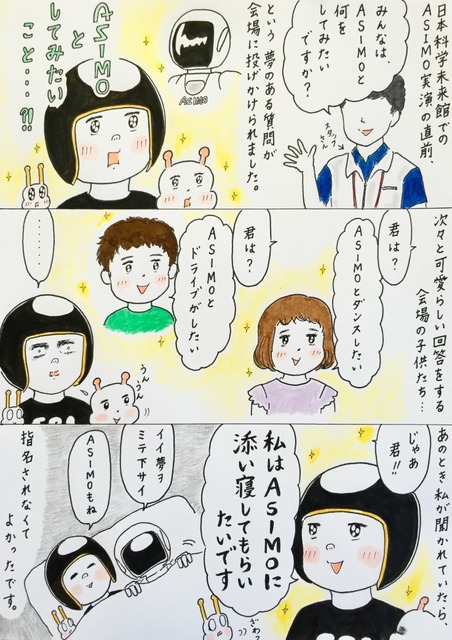 日本科学未来館での
ASIMO実演の直前
みんなは
ASIMOと
何を
してみたい
ですか?
スタッフ
さん
という夢のある質問が
会場に投げかけられました。
ASIMO
ASIMO
と
してみたい
こと・・・・?!
次々と可愛らしい回答をする
会場の子供たち…
君は?
ASIMOとダンスしたい
君は?
ASIMOと
ドライブがしたい
・・・・・・
うん
うん
あのとき私が聞かれていたら、
じゃあ
君!!
私はASIMOに
添い寝してもらい
たいです
ざわっ
イイ夢ヲ
ミテ下サイ
ASIMOもね
指名されなくて
よかったです。